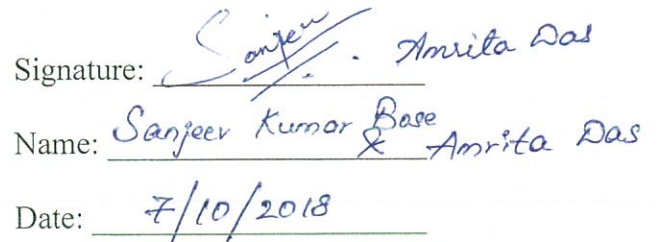 Signature: Sanjeev . Amrita Das
Name: Sanjeev Kumar Bose & Amrita Das
Date: 7/10/2018